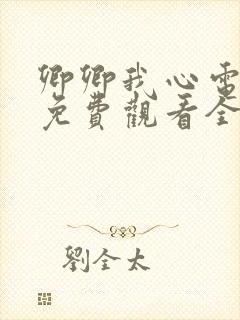 卿卿我心電
免費觀看全
劉全太